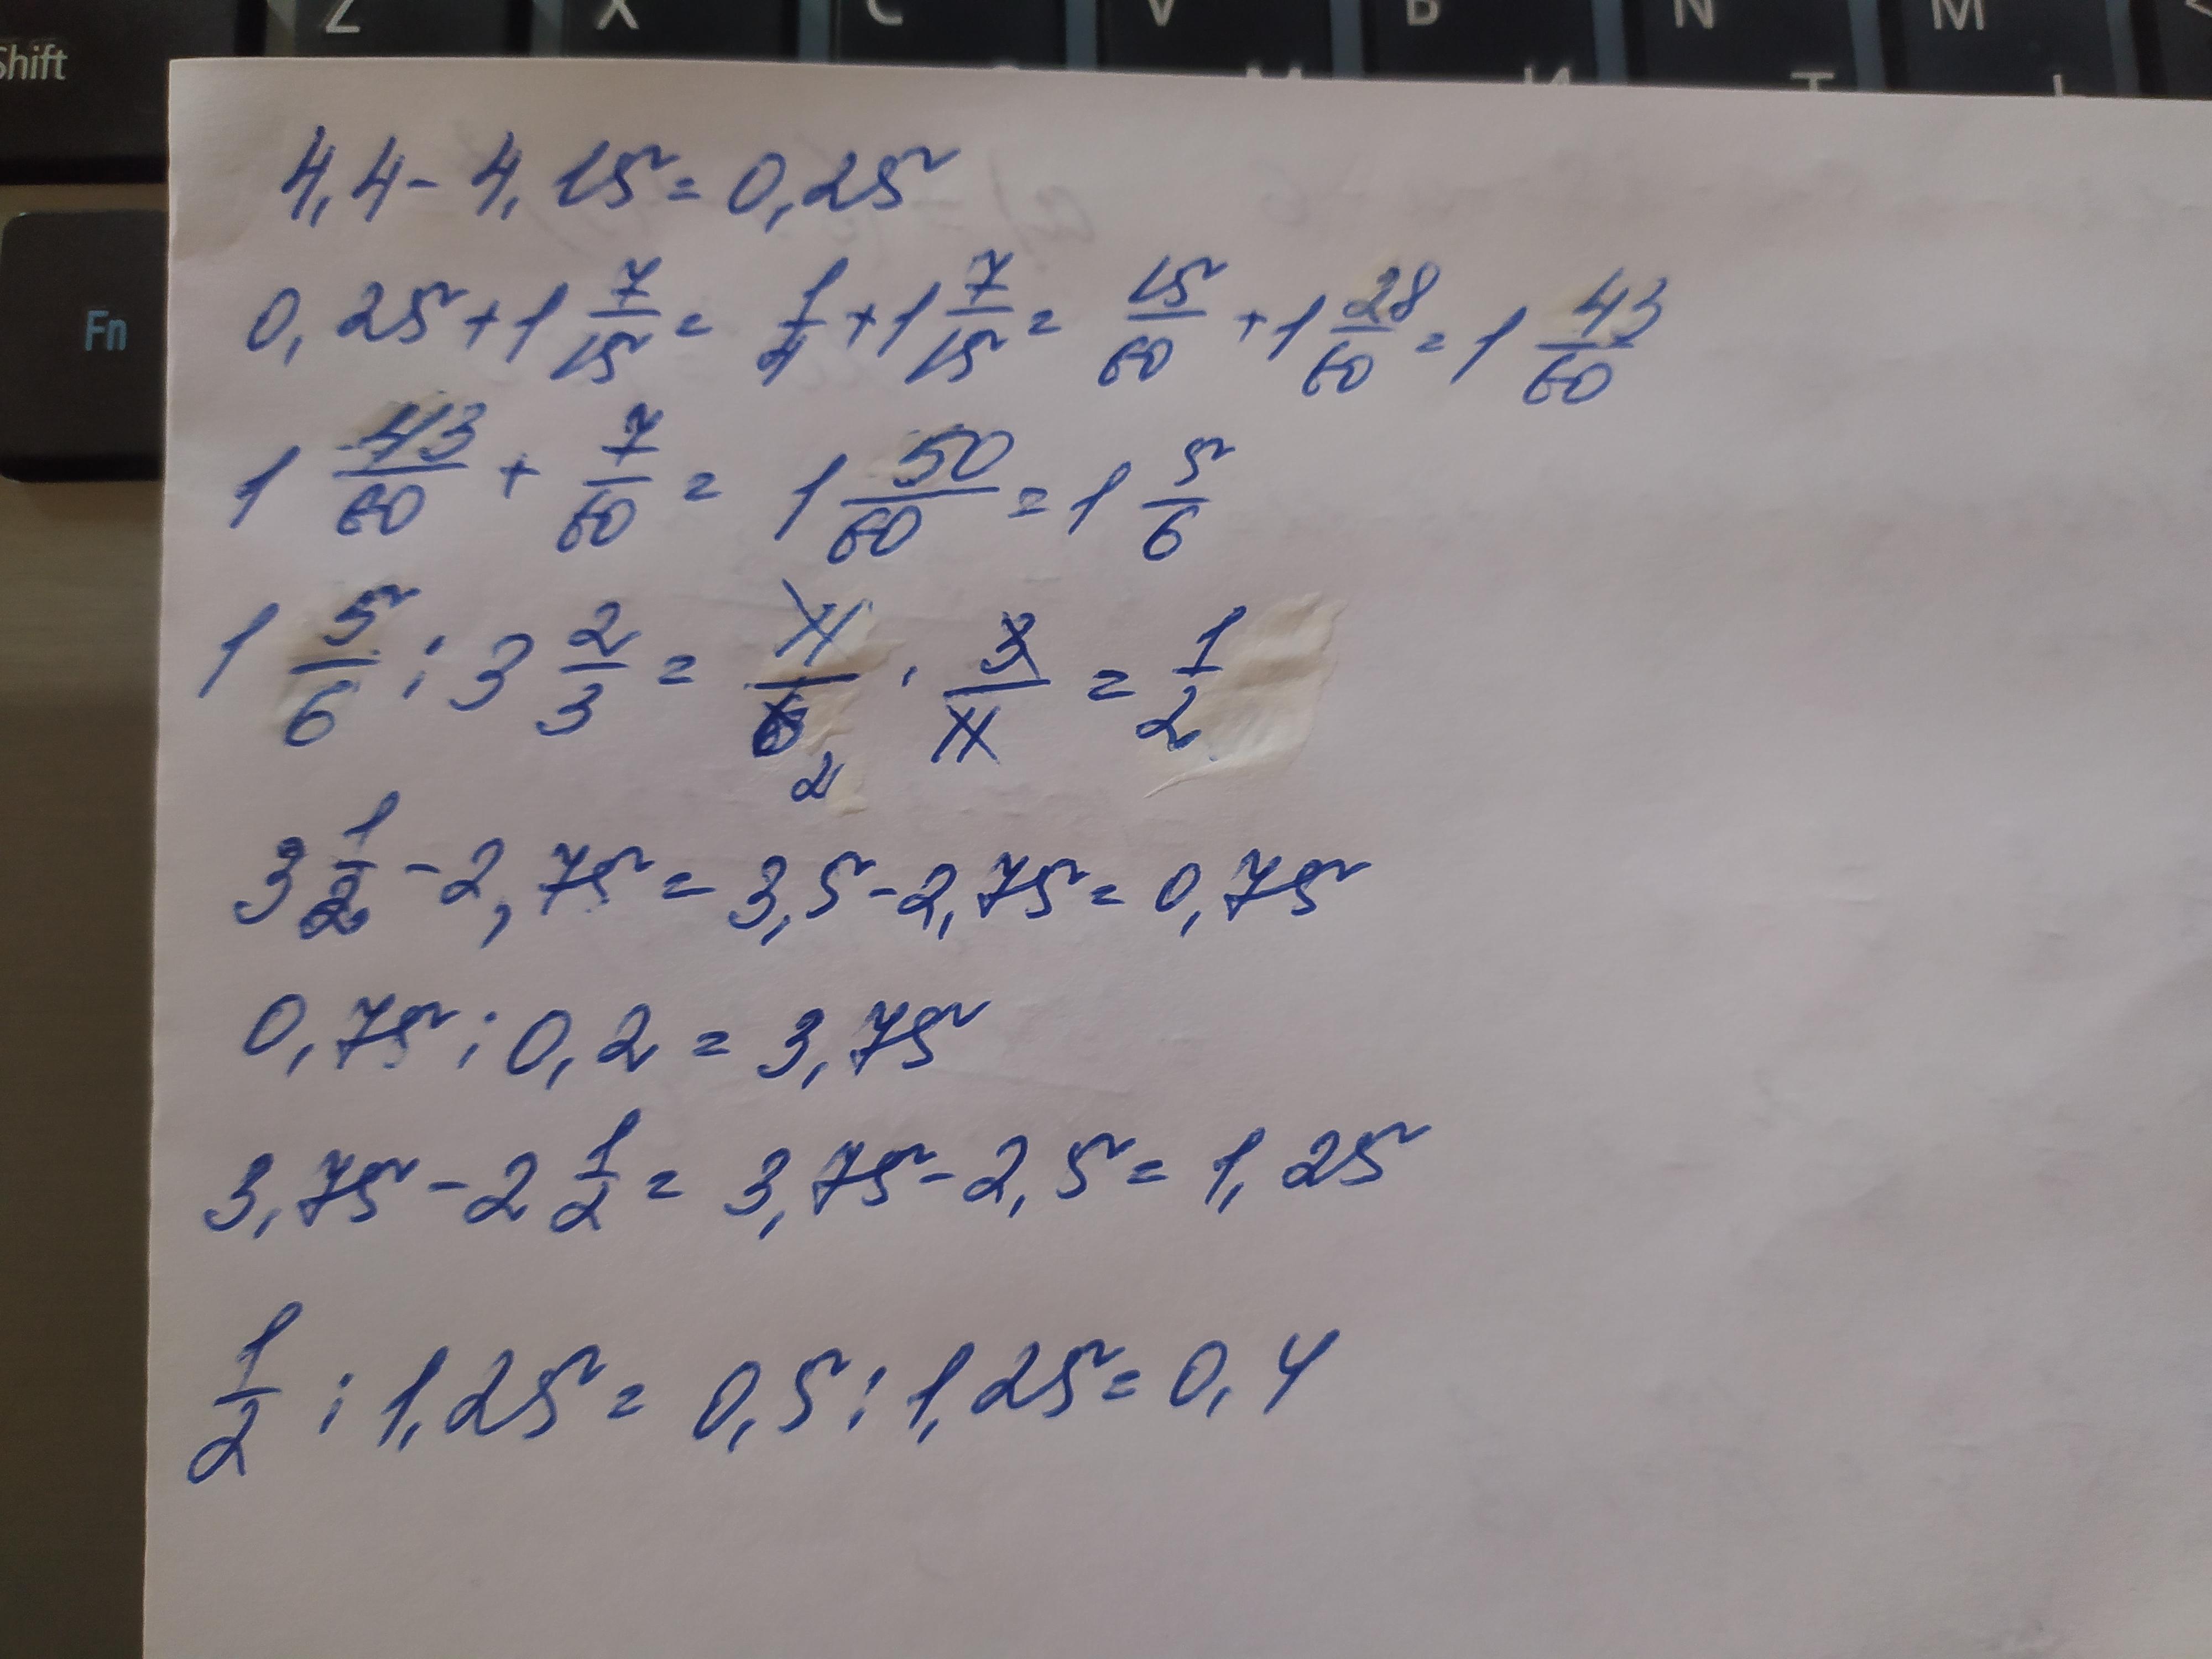 Z X C V B N M <
Shift
С М И Т Ь
Fn
4,4-4,15=0,25
0,25+1 7/15= 1/4+1 7/15= 15/60+1 28/60=1 43/60
1 43/60+7/60= 1 50/60=1 5/6
1 5/6:3 2/3= 11/6 2·3/11=1/2
3 1/2-2,75=3,5-2,75=0,75
0,75:0,2=3,75
3,75-2 1/2=3,75-2,5=1,25
1/2:1,25=0,5:1,25=0,4